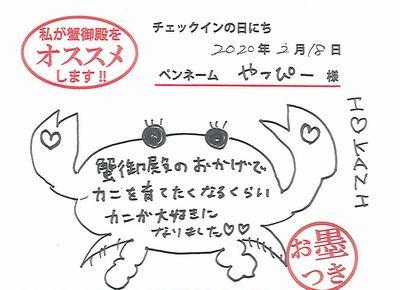 私が蟹御殿を
オススメ
します!!
チェックインの日にち
2020年2月18日
ペンネーム やっぴー 様
I♡KANI
蟹御殿のおかげで
カニを育てたくなるくらい
カニが大好きに
なりました♡♡
お墨
つき